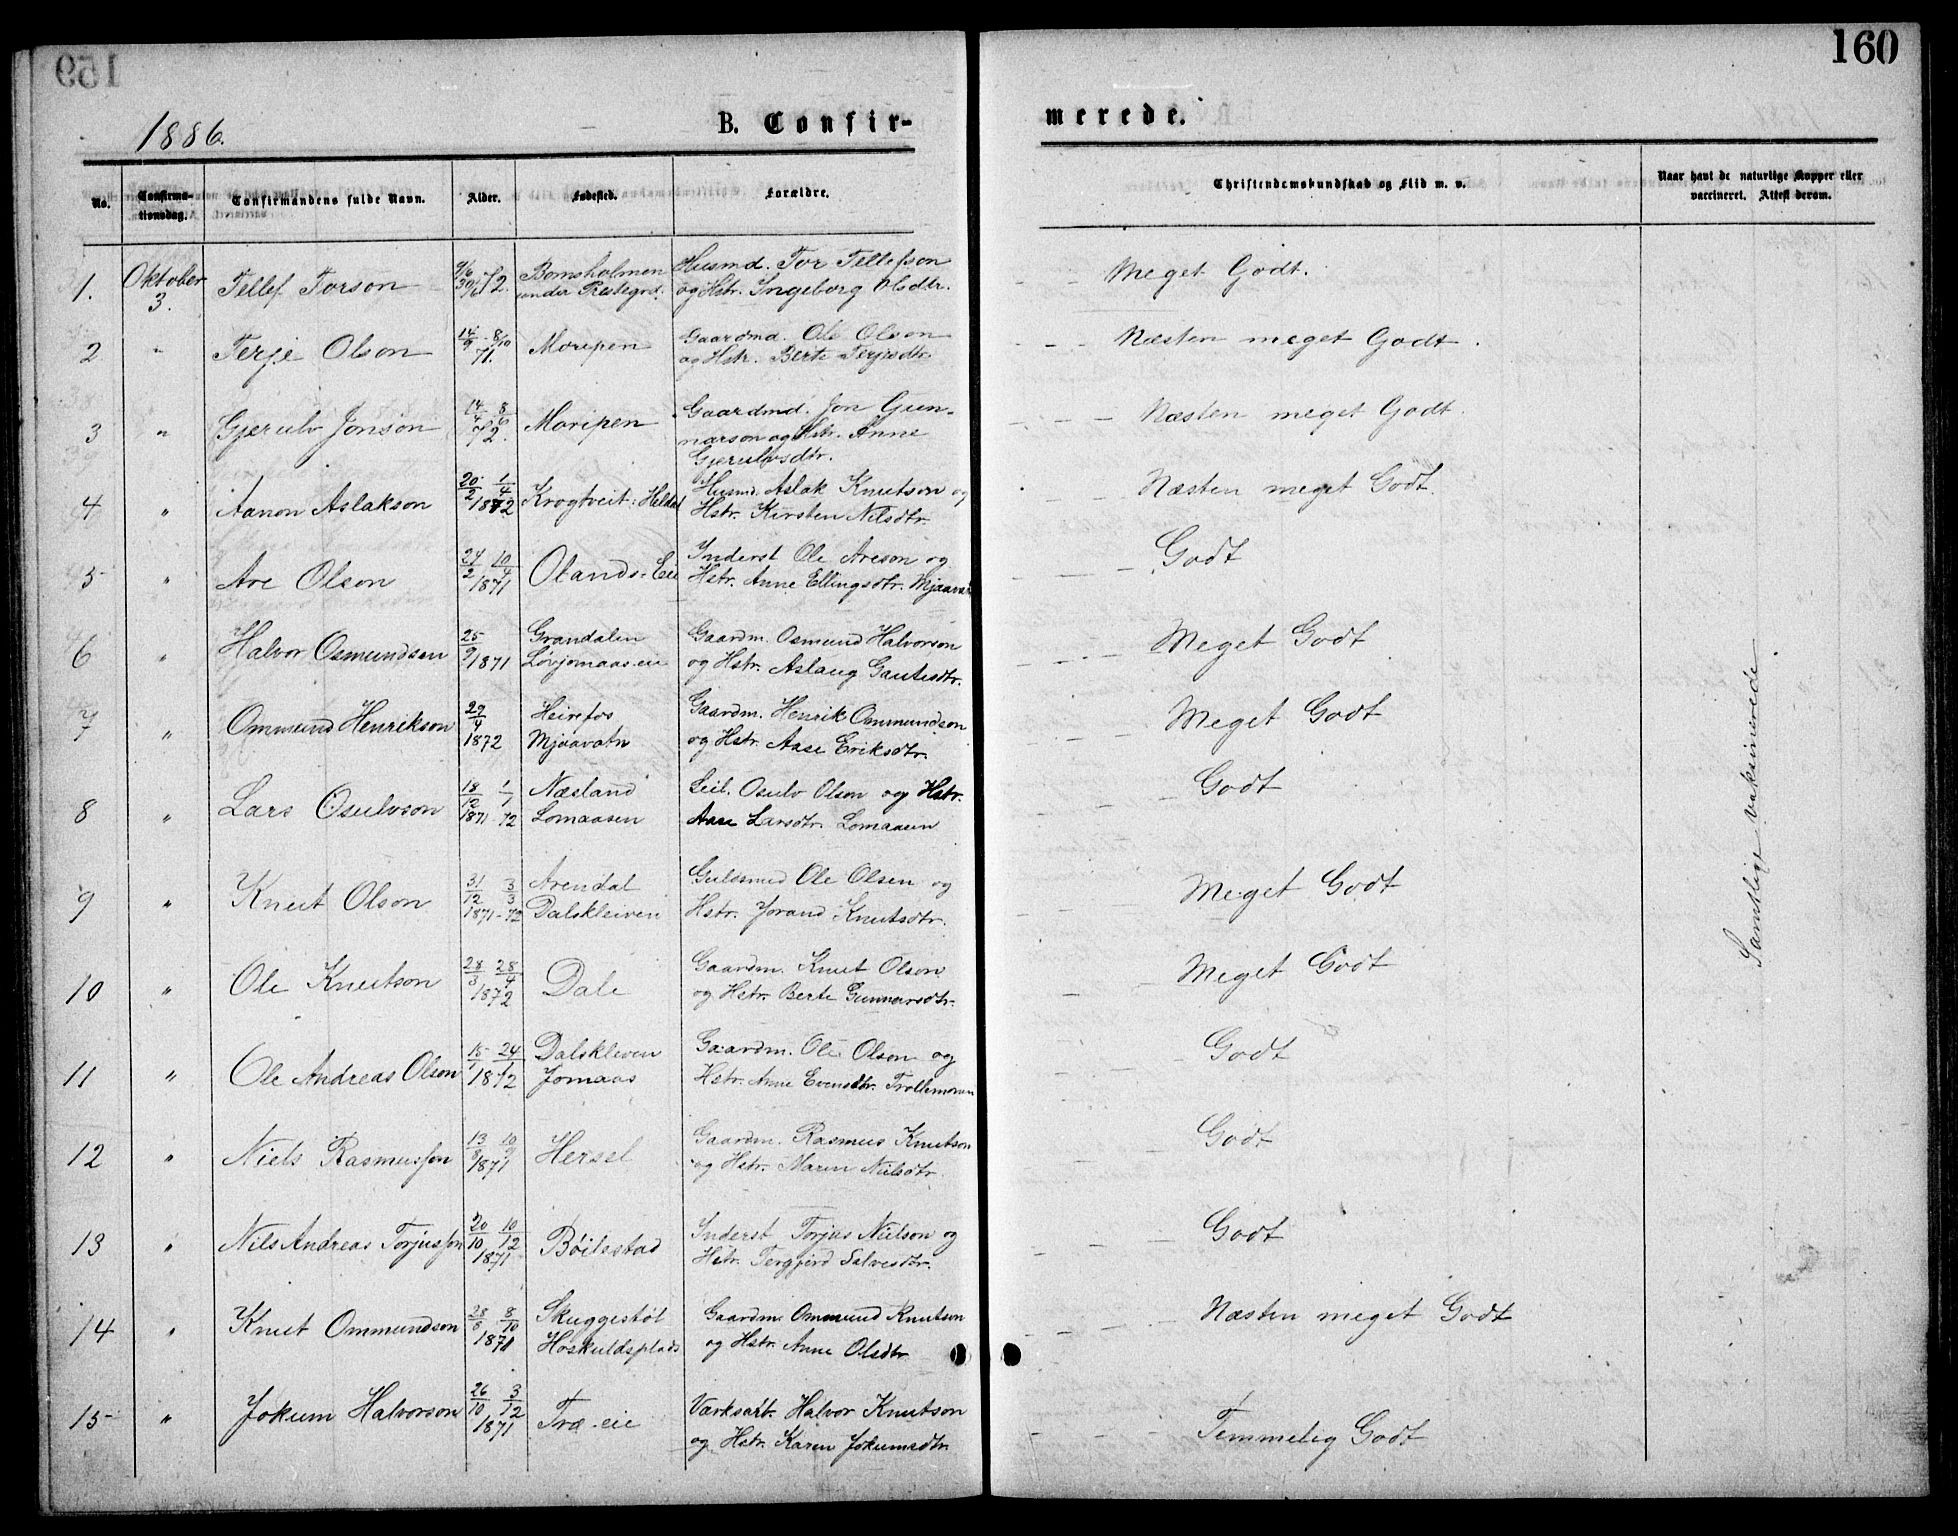 159
160
1886.
B. Confir-
merede.
No.
Confirma-
tionsdag.
Confirmandens fulde Navn.
Alder.
Fødested.
Forældre.
Christendomskundskab og Flid m. v.
Naar havt de naturlige Kopper eller
vaccineret. Attest derom.
1. Oktober 3. Tellef Torson 9/6 30/6 72. Bomsholmen under Prestegrd. Husmd. Tor Tellefson og Hstr. Ingeborg Olsdtr. Meget Godt.
2 " Terje Olson 14/9 - 8/10 71. Moripen Gaardmd. Ole Olson og Hstr. Berte Terjesdtr. - - - Næsten meget Godt.
3 " Gjerulv Jonson 14/4 8/6 72. Moripen Gaardmd. Jon Gun-
narson og Hstr. Anne
Gjerulvsdtr. - - - Næsten meget Godt.
4 " Aanon Aslakson 20/2 - 1/4 1872 Krogtveit: Heldal Husmd. Aslak Knutson og
Hstr. Kirsten Nilsdtr. Næsten meget Godt.
5 " Are Olson 24/2 10/4 1871 Olands-Eie Inderst Ole Areson og
Hstr. Anne Ellingsdtr. Godt
6 " Halvor Osmundsen 25/9 1871 Grandalen
Løvjomaas-eie Gaardm. Osmund Halvorson
og Hstr. Aslaug Gautesdtr. Meget Godt
7 " Ommund Henrikson 29/4 1872 Heirefos
Mjaavatn Gaardm. Henrik Ommundson
og Hstr. Aase Eriksdtr. Meget Godt
8 " Lars Osulvson 18/12 - 1/1 1871-72 Næsland
Lomaasen Leil. Osulv Olson og Hstr.
Aase Larsdtr. Lomaasen Godt
9 " Knut Olson 31/12 3/3 1871-72 Arendal
Dalskleiven Guldsmed Ole Olsen og
Hstr. Jorand Knutsdtr. Meget Godt
10 " Ole Knutson 28/3 28/4 1872 Dale Gaardm. Knut Olson
og Hstr. Berte Gunnarsdtr. Meget Godt
11 " Ole Andreas Olson 15/1 - 24/ 1872 Dalskleven
Jomaas Gaardm. Ole Olson og
Hstr. Anne Evensdtr. Trollemoren Godt
12 " Niels Rasmussøn 13/8 10/9 1871 Hersel Gaardm. Rasmus Knutson
og Hstr. Maren Nielsdtr. Godt
13 " Nils Andreas Torjussøn 20/10 10/12 1871 Bøilestad Inderst Torjus Nielson og
Hstr. Tergjerd Salvesdtr. Godt
14 " Knut Ommundson 28/8 8/10 1871 Skuggestøl
Høskuldsplads Gaardm. Ommund Knutson
og Hstr. Anne Olsdtr Næsten meget Godt
15 " Jokum Halvorson 26/10 3/12 1871 Træ-eie Værksarb. Halvor Knutson
og Hstr. Karen Jokumsdtr. Temmelig Godt
Samtlige vaksinerede.